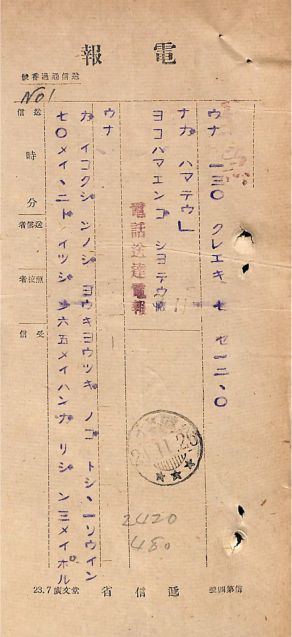 電報
送信通過番號
No1
送信
時分
送信者
照校者
受信
ウナ 一三〇 クレエキ 七 セ一二、〇
ナガ ハマテウ」
ヨコハマエンゴ シヨテウ
電話送達電報
ウナ
ガ イコクジ ンノジ ヨウキヨウツギ ノゴ トシ、一ソウイン
七〇メイ、ニド イツジ 六五メイハンガ リジ ン三メイポル
11.26
2420
480
23.7 堂文廣
遞信省
信第四號